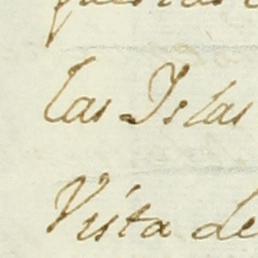 las Islas
Vista de